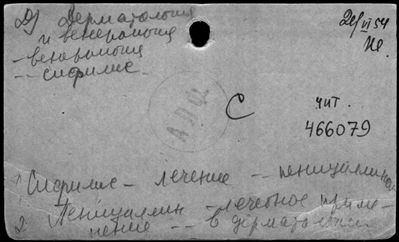 2) Дерматология
и венерология
- венерология
-- сифилис.
24/VI 54
Не
С
чит.
466079
АЛФ
1 Сифилис - лечение -- пенициллином
2. Пенициллин - лечебное приме-
нение -- в дерматологии